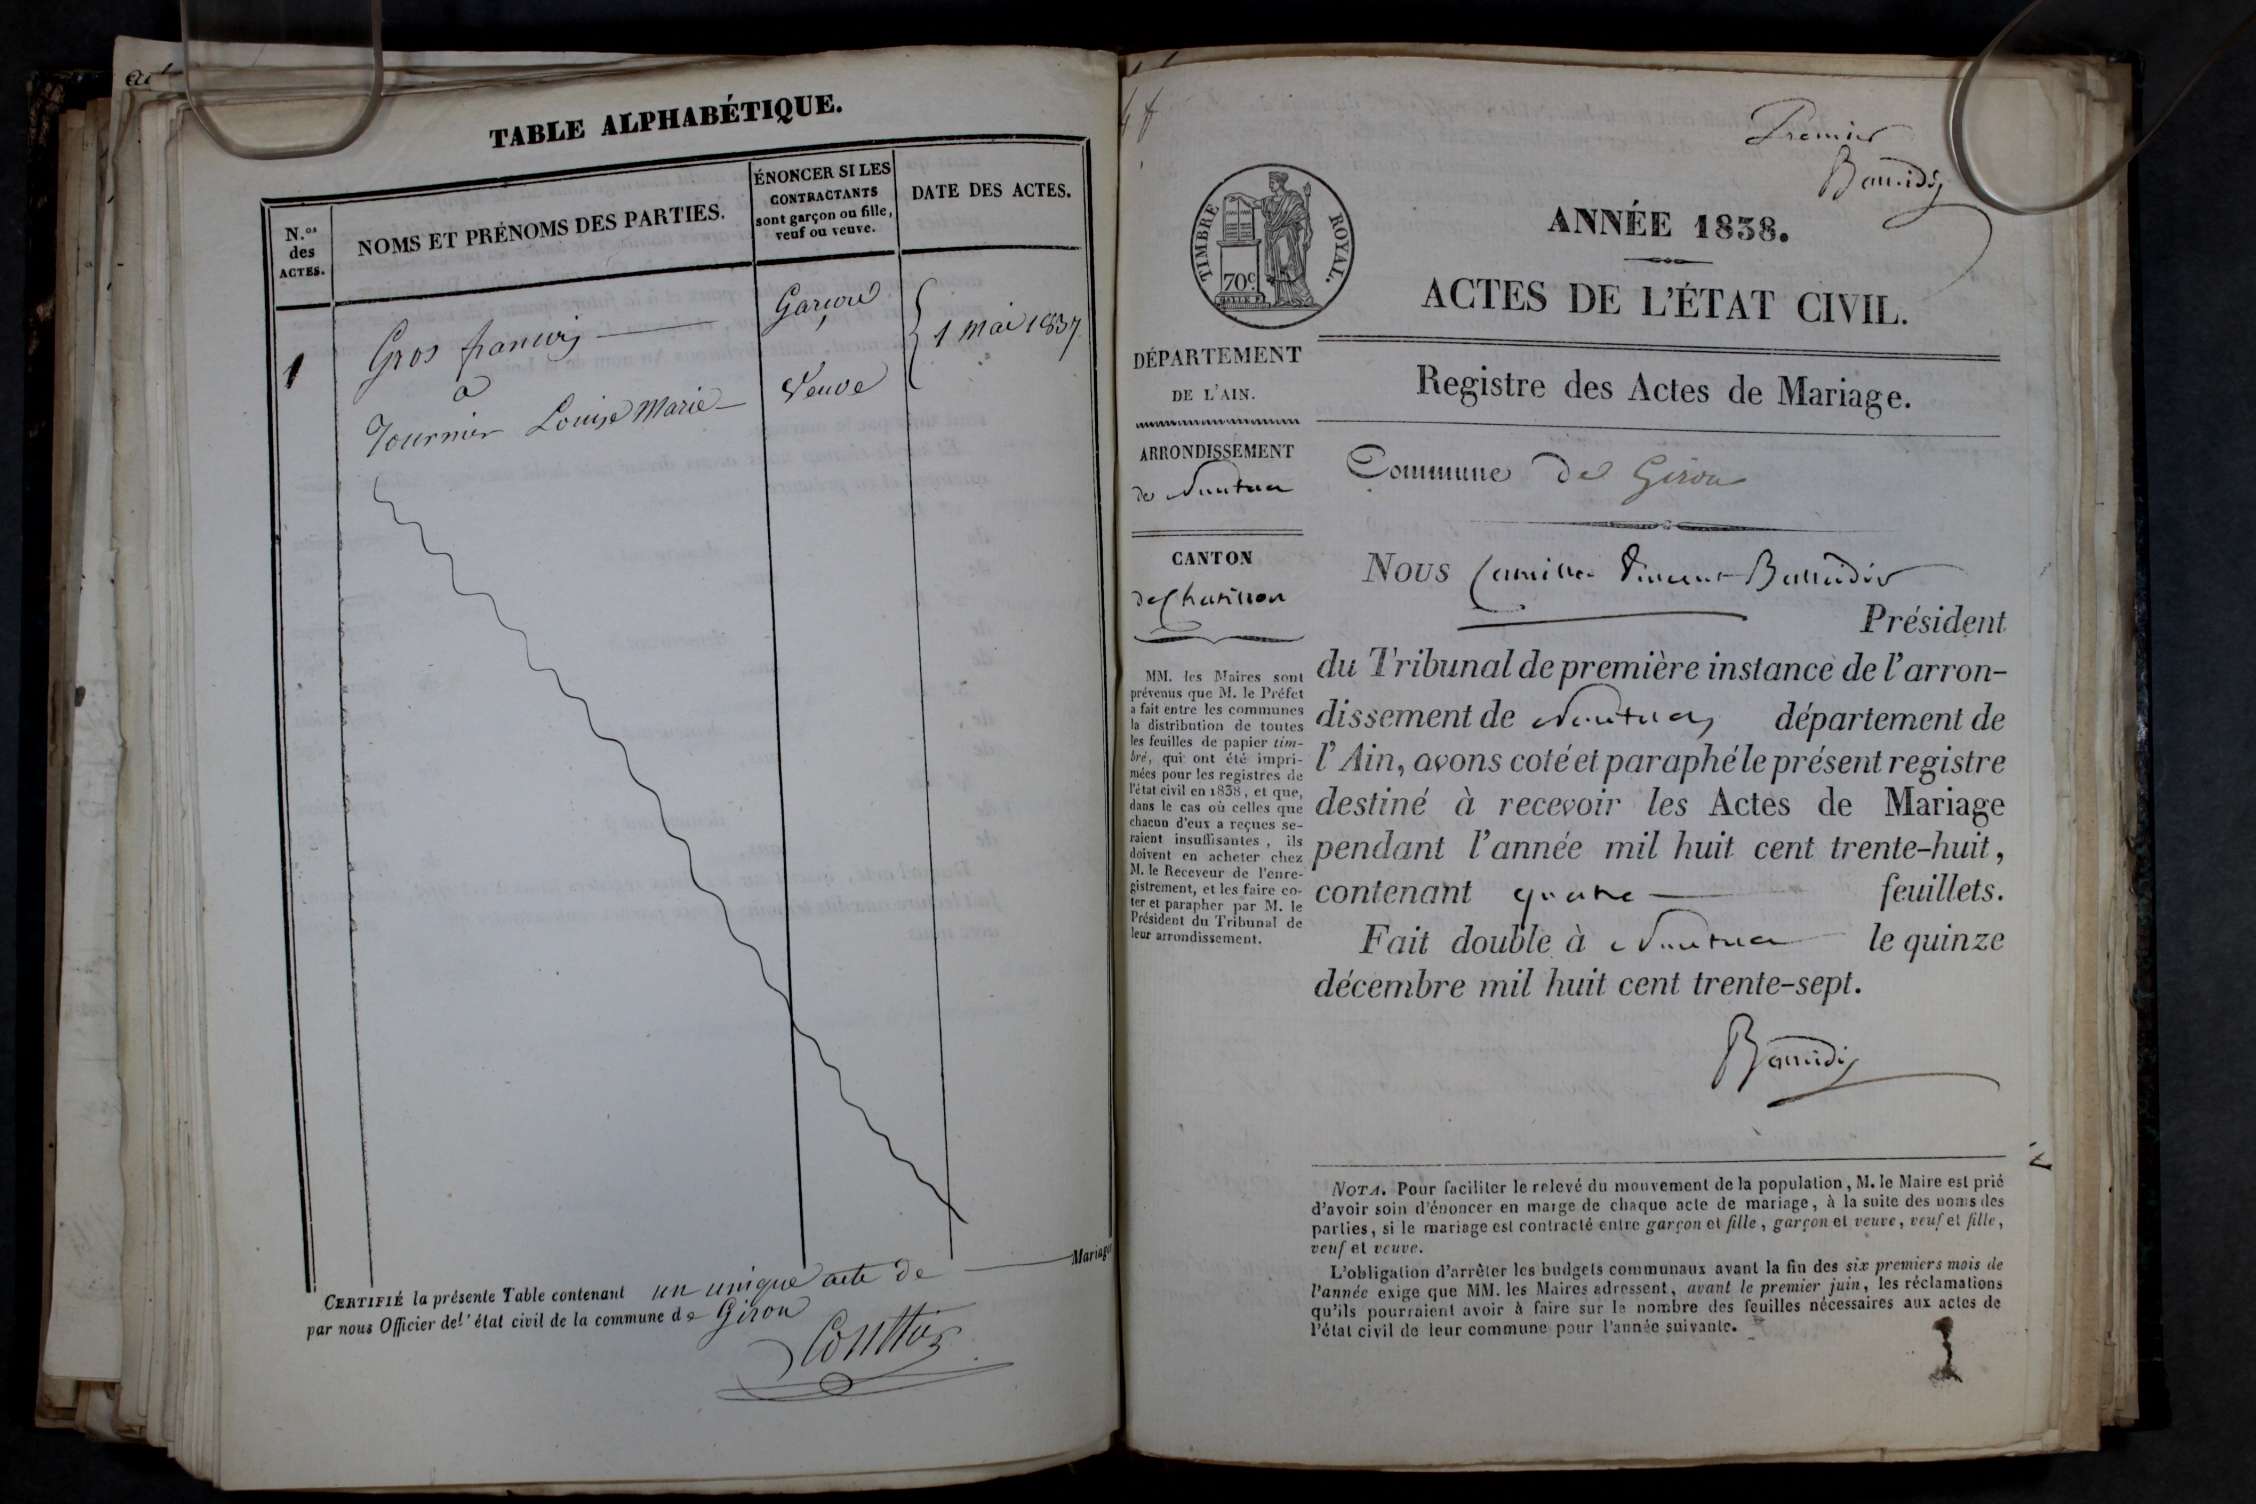 TABLE ALPHABÉTIQUE.
N.os
des
ACTES.
NOMS ET PRÉNOMS DES PARTIES.
ÉNONCER SI LES
CONTRACTANTS
sont garçon ou fille,
veuf ou veuve.
DATE DES ACTES.
1
Gros françois
Garçon
1 mai 1837
à
Tournier Louise Marie
Veuve
CERTIFIÉ la présente Table contenant un unique acte de Mariage
par nous Officier de l'état civil de la commune de Giron
Premier
TIMBRE ROYAL.
70c
ANNÉE 1838.
ACTES DE L'ÉTAT CIVIL.
DÉPARTEMENT
DE L'AIN.
ARRONDISSEMENT
de Nantua
CANTON
de Chatillon
MM. les Maires sont
prévenus que M. le Préfet
a fait entre les communes
la distribution de toutes
les feuilles de papier tim-
bré, qui ont été impri-
mées pour les registres de
l'état civil en 1838, et que,
dans le cas où celles que
chacun d'eux a reçues se-
raient insuffisantes, ils
doivent en acheter chez
M. le Receveur de l'enre-
gistrement, et les faire co-
ter et parapher par M. le
Président du Tribunal de
leur arrondissement.
Registre des Actes de Mariage.
Commune de Giron
Nous Camille Vincent
Président
du Tribunal de première instance de l'arron-
dissement de Nantua, département de
l'Ain, avons coté et paraphé le présent registre
destiné à recevoir les Actes de Mariage
pendant l'année mil huit cent trente-huit,
contenant quatre feuillets.
Fait double à Nantua le quinze
décembre mil huit cent trente-sept.
NOTA. Pour faciliter le relevé du mouvement de la population, M. le Maire est prié
d'avoir soin d'énoncer en marge de chaque acte de mariage, à la suite des noms des
parties, si le mariage est contracté entre garçon et fille, garçon et veuve, veuf et fille,
veuf et veuve.
L'obligation d'arrêter les budgets communaux avant la fin des six premiers mois de
l'année exige que MM. les Maires adressent, avant le premier juin, les réclamations
qu'ils pourraient avoir à faire sur le nombre des feuilles nécessaires aux actes de
l'état civil de leur commune pour l'année suivante.